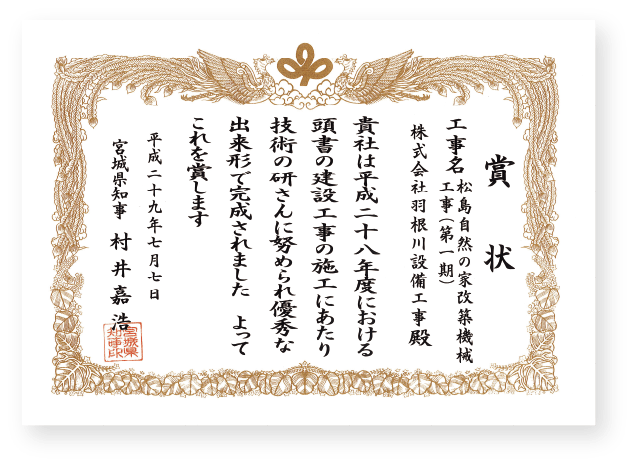 賞状
工事名 松島自然の家改築機械
工事（第一期）
株式会社羽根川設備工事殿
貴社は平成二十八年度における
頭書の建設工事の施工にあたり
技術の研さんに努められ優秀な
出来形で完成されました　よって
これを賞します
平成二十九年七月七日
宮城県知事　村井嘉浩
宮城県
知事印